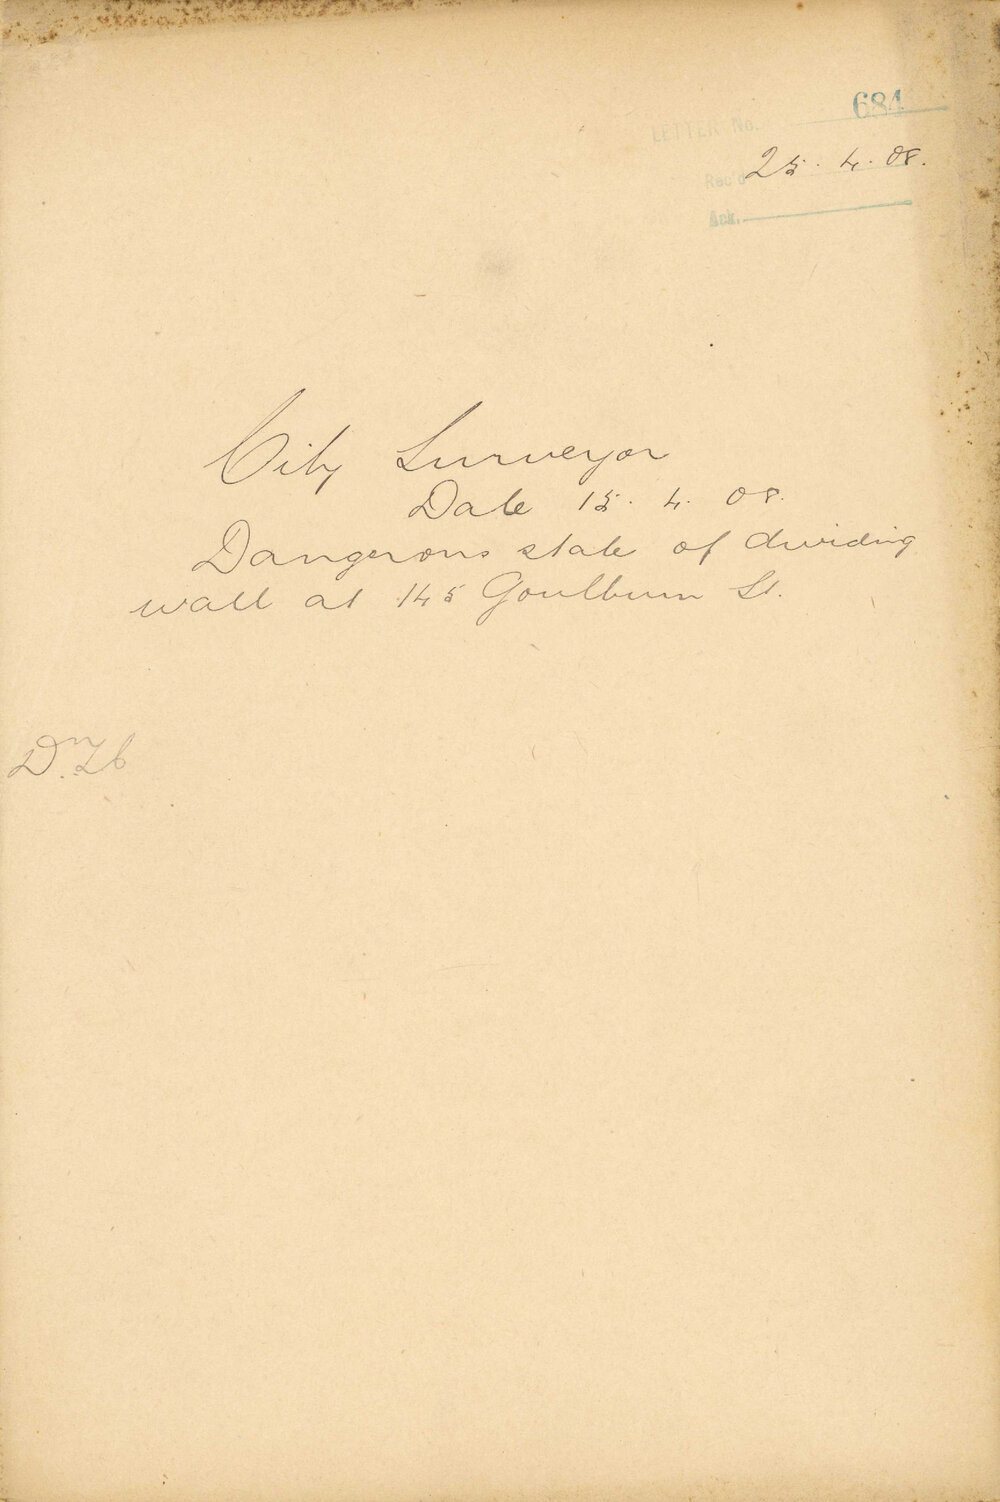 LETTER No. 684
Rec'd 25. 4. 08.
Ack.
City Surveyor
Date 15. 4. 08.
Dangerous state of dividing
wall at 145 Goulburn St.